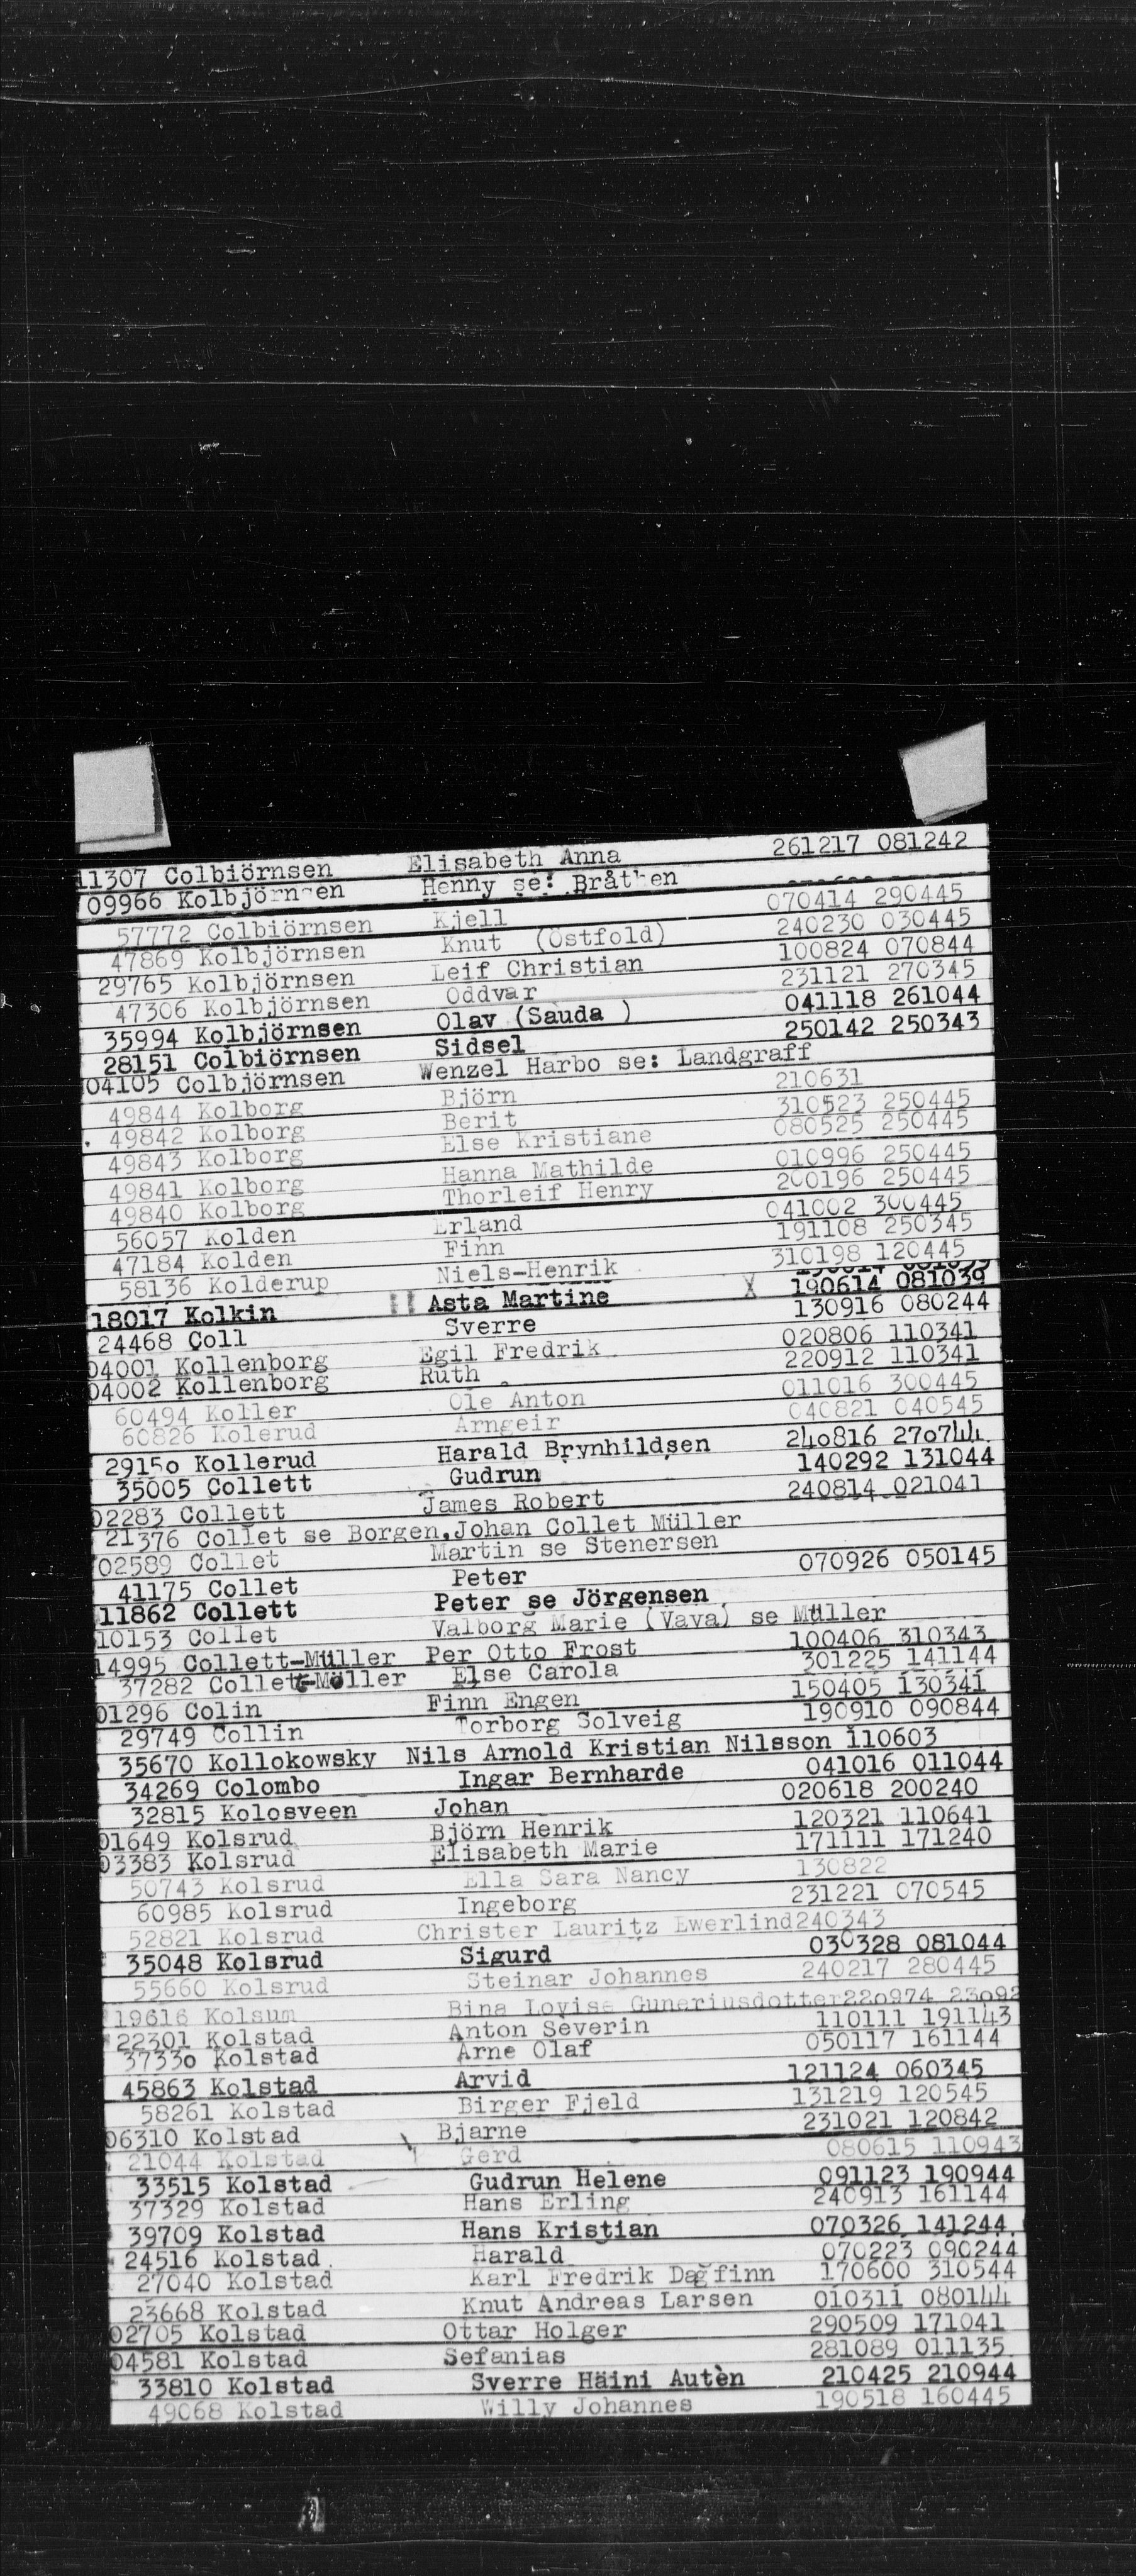 11307 Colbiörnsen Elisabeth Anna 261217 081242
09966 Kolbjörnsen Henny se: Bråthen
57772 Colbiörnsen Kjell 070414 290445
47869 Kolbjörnsen Knut (Östfold) 240230 030445
29765 Kolbjörnsen Leif Christian 100824 070844
47306 Kolbjörnsen Oddvar 231121 270345
35994 Kolbjörnsen Olav (Sauda ) 041118 261044
28151 Colbiörnsen Sidsel 250142 250343
04105 Colbjörnsen Wenzel Harbo se: Landgraff
49844 Kolborg Björn 210631
49842 Kolborg Berit 310523 250445
49843 Kolborg Else Kristiane 080525 250445
49841 Kolborg Hanna Mathilde 010996 250445
49840 Kolborg Thorleif Henry 200196 250445
56057 Kolden Erland 041002 300445
47184 Kolden Finn 191108 250345
58136 Kolderup Niels-Henrik 310198 120445
18017 Kolkin Asta Martine X 190614 081039
24468 Coll Sverre 130916 080244
04001 Kollenborg Egil Fredrik 020806 110341
04002 Kollenborg Ruth 220912 110341
60494 Koller Ole Anton 011016 300445
60826 Kolerud Arngeir 040821 040545
29150 Kollerud Harald Brynhildsen 240816 270744
35005 Collett Gudrun 140292 131044
02283 Collett James Robert 240814 021041
21376 Collet se Borgen,Johan Collet Müller
02589 Collet Martin se Stenersen
41175 Collet Peter 070926 050145
11862 Collett Peter se Jörgensen
10153 Collet Valborg Marie (Vava) se Müller
14995 Collett-Müller Per Otto Frost 100406 310343
37282 Collett-Möller Else Carola 301225 141144
01296 Colin Finn Engen 150405 130341
29749 Collin Torborg Solveig 190910 090844
35670 Kollokowsky Nils Arnold Kristian Nilsson 110603
34269 Colombo Ingar Bernharde 041016 011044
32815 Kolosveen Johan 020618 200240
01649 Kolsrud Björn Henrik 120321 110641
03383 Kolsrud Elisabeth Marie 171111 171240
50743 Kolsrud Ella Sara Nancy 130822
60985 Kolsrud Ingeborg 231221 070545
52821 Kolsrud Christer Lauritz Ewerlind240343
35048 Kolsrud Sigurd 030328 081044
55660 Kolsrud Steinar Johannes 240217 280445
19616 Kolsum Bina Lovise Gunariusdotter220974 23092
22301 Kolstad Anton Severin 110111 191143
37330 Kolstad Arne Olaf 050117 161144
45863 Kolstad Arvid 121124 060345
58261 Kolstad Birger Fjeld 131219 120545
06310 Kolstad Bjarne 231021 120842
21044 Kolstad Gerd 080615 110943
33515 Kolstad Gudrun Helene 091123 190944
37329 Kolstad Hans Erling 240913 161144
39709 Kolstad Hans Kristian 070326 141244
24516 Kolstad Harald 070223 090244
27040 Kolstad Karl Fredrik Dagfinn 170600 310544
23668 Kolstad Knut Andreas Larsen 010311 080144
02705 Kolstad Ottar Holger 290509 171041
04581 Kolstad Sefanias 281089 011135
33810 Kolstad Sverre Häini Autèn 210425 210944
49068 Kolstad Willy Johannes 190518 160445